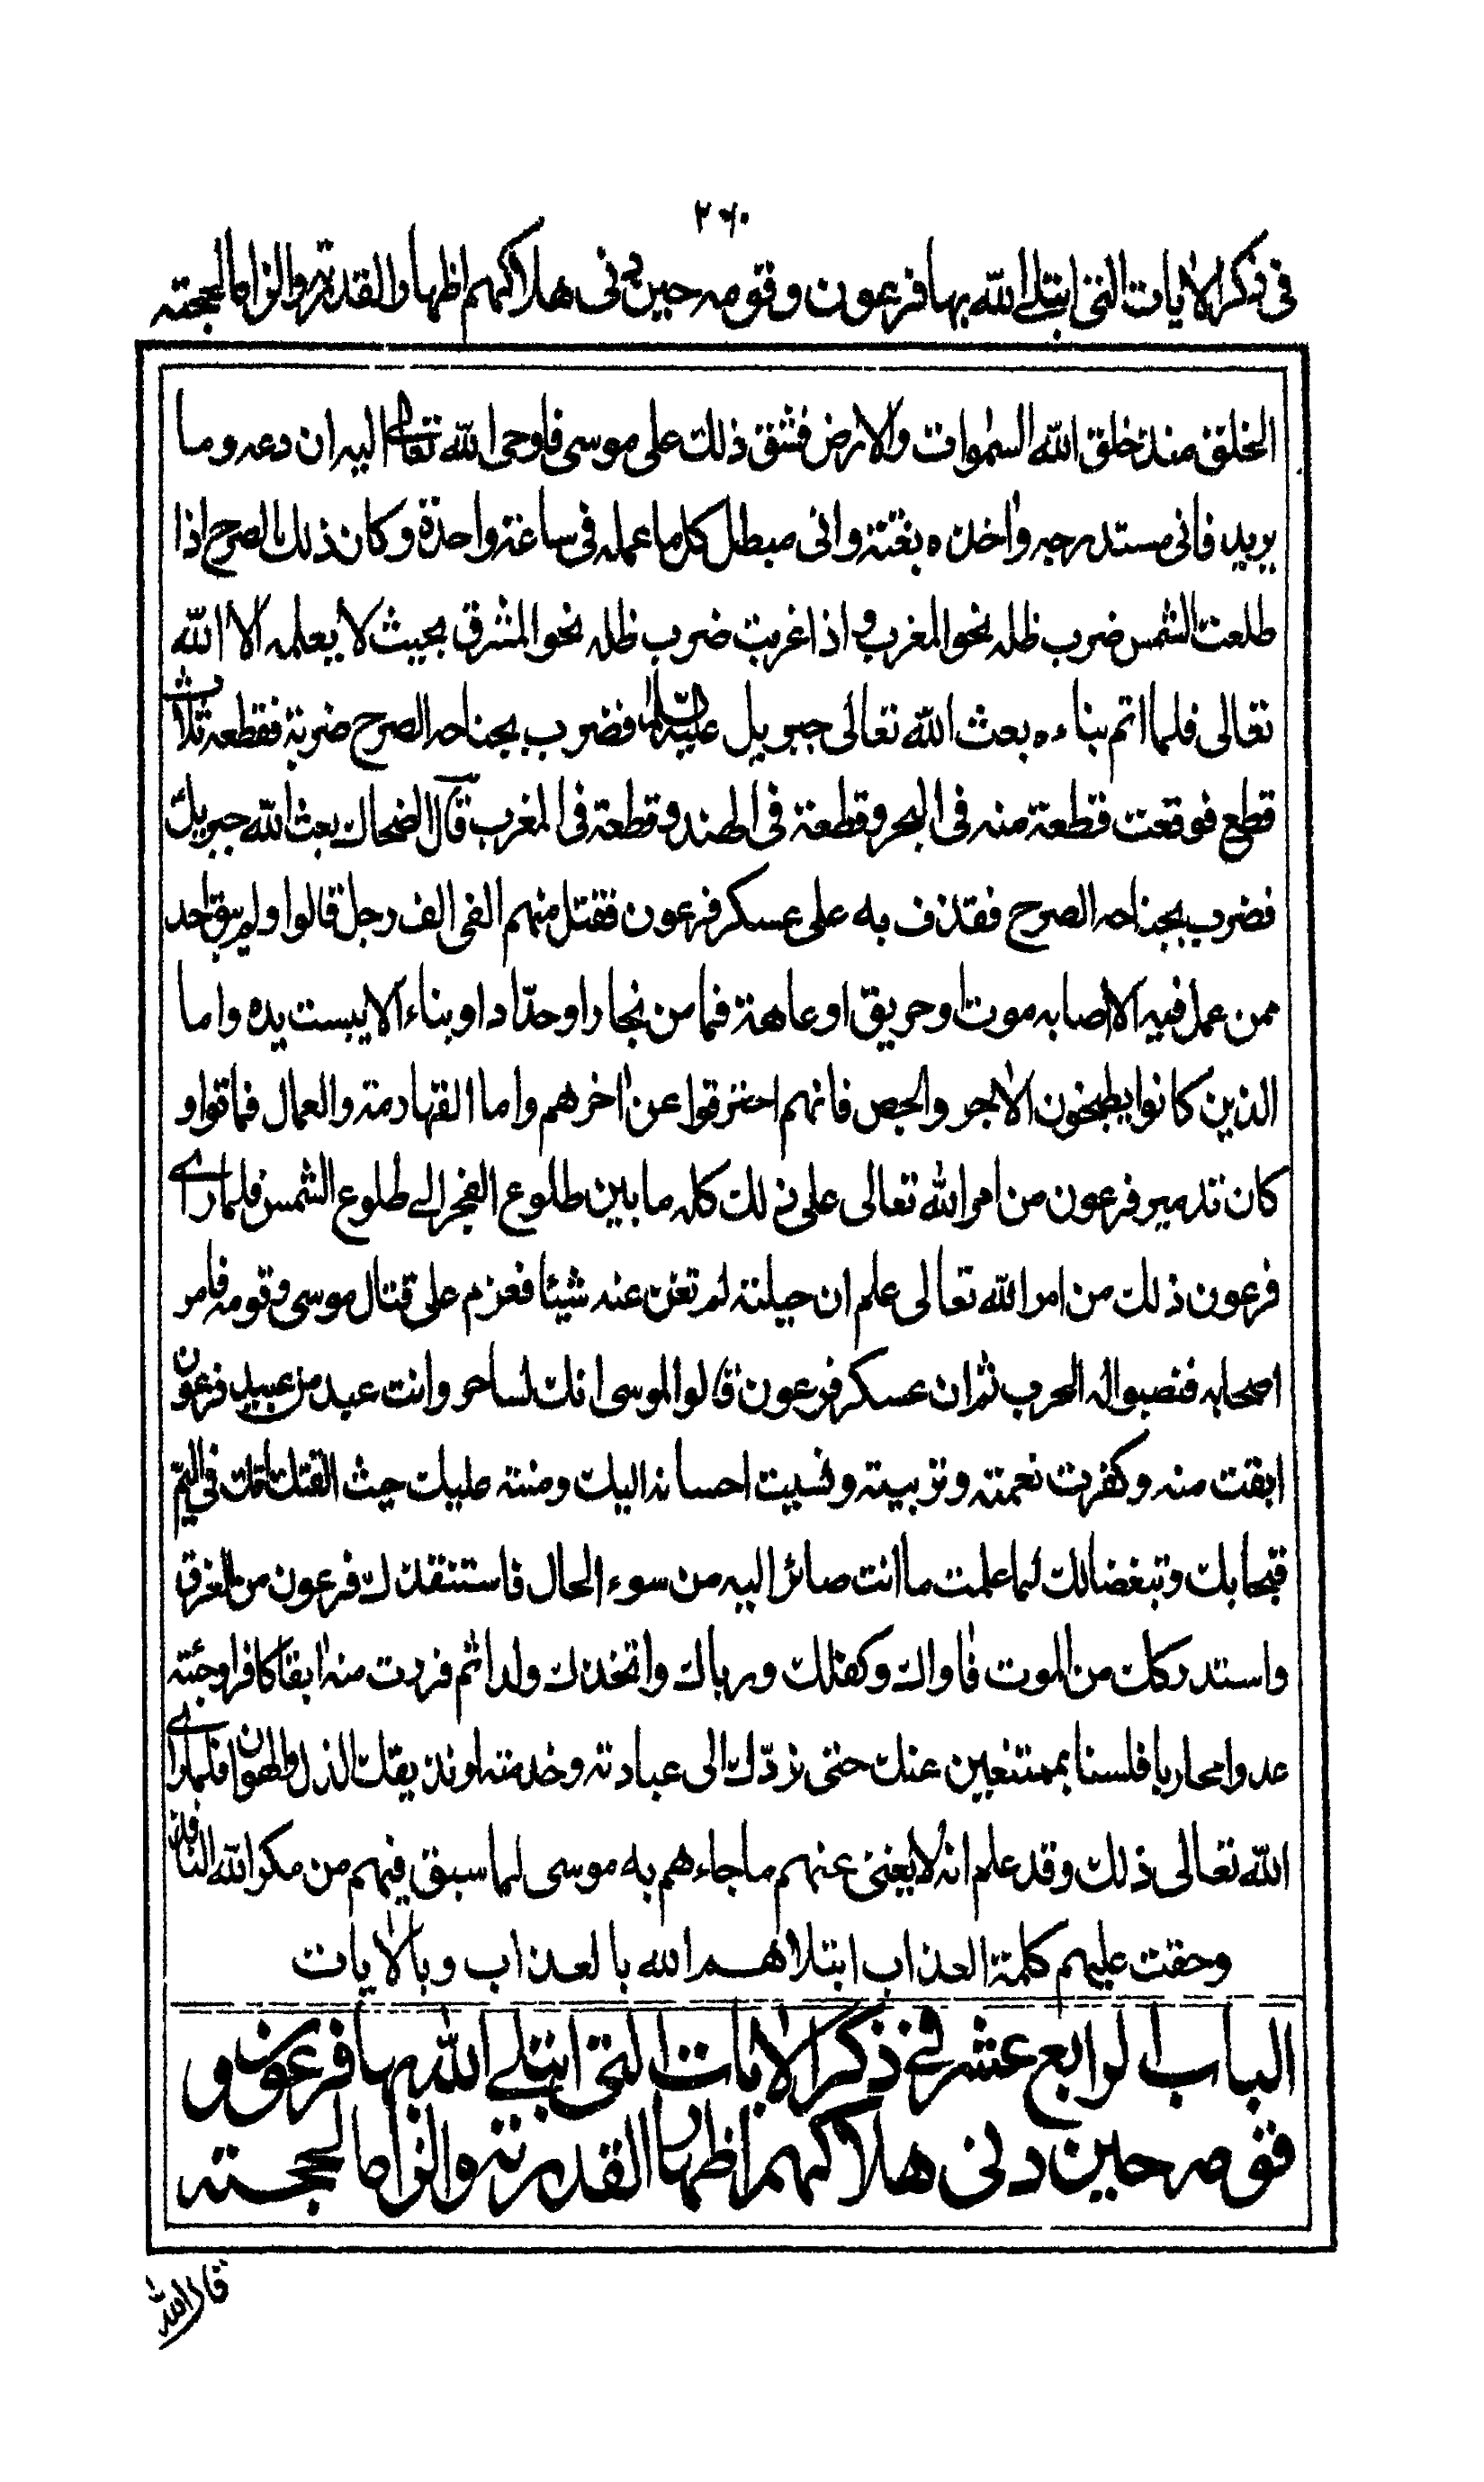 ٢٦٠
في ذكر الاٰيات التى ابتلى الله بها فرعون وقومه حين دنى هلاكهم اظهارا لقدرته والزاما لحجته
الخلق منذ خلق الله السمٰوات والارض فشق ذلك على موسى فاوحى الله تعالى اليه ان دعه وما
يريد فانى مستدرجه واٰخذه بغتة وانى مبطل كل ما عمله فى ساعة واحدة وكان ذلك الصرح اذا
طلعت الشمس ضرب ظله نحو المغرب واذا غربت ضرب ظله نحو المشرق بحيث لا يعلمه الا الله
تعالى فلما اتم بناءه بعث الله تعالى جبريل عليه السلام فضرب بجناحه الصرح ضربة فقطعه ثلاث
قطع فوقعت قطعة منه فى البحر وقطعة فى الهند وقطعة فى المغرب قال الضحاك بعث الله جبريل
فضرب بجناحه الصرح فقذف به على عسكر فرعون فقتل منهم الفى الف رجل قالوا ولم يبق احد
ممن عمل فيه الا اصابه موت او حريق او عاهة فما من نجار او حدّاد او بناء الا يبست يده واما
الذين كانوا يطبخون الاٰجر والجص فانهم احترقوا عن اٰخرهم واما القهارمة والعمال فماتوا و
كان تدمير فرعون من امر الله تعالى على ذلك كله ما بين طلوع الفجر الى طلوع الشمس فلما راى
فرعون ذلك من امر الله تعالى علم ان حيلته لم تغن عنه شيئا فعزم على قتال موسى وقومه فامر
اصحابه فنصبوا له الحرب ثم ان عسكر فرعون قالوا لموسى انك لساحر وانت عبد من عبيد فرعون
ابقت منه وكفرت نعمته وتربيته ونسيت احسانه اليك ومنته عليك حيث القتك امك في اليم
قبحا بك وتبغضا لك لما علمت ما انت صائر اليه من سوء الحال فاستنقذك فرعون من الغرق
واستدركك من الموت فاٰواك وكفلك ورباك واتخذك ولدا ثم فررت منه اٰبقا كافرا وجئته
عدوا محاربا فلسنا بممتنعين عنك حتى نردّك الى عبادته وخدمته او نذيقك الذل والهوان فلما راى
الله تعالى ذلك وقد علم انه لا يغنى عنهم ما جاءهم به موسى لما سبق فيهم من مكر الله النافذ
وحقت عليهم كلمة العذاب ابتلاهم الله بالعذاب وبالاٰيات
الباب الرابع عشر في ذكر الاٰيات التى ابتلى الله بها فرعون و
قومه حين دنى هلاكهم اظهارا لقدرته والزاما لحجته
قال الله